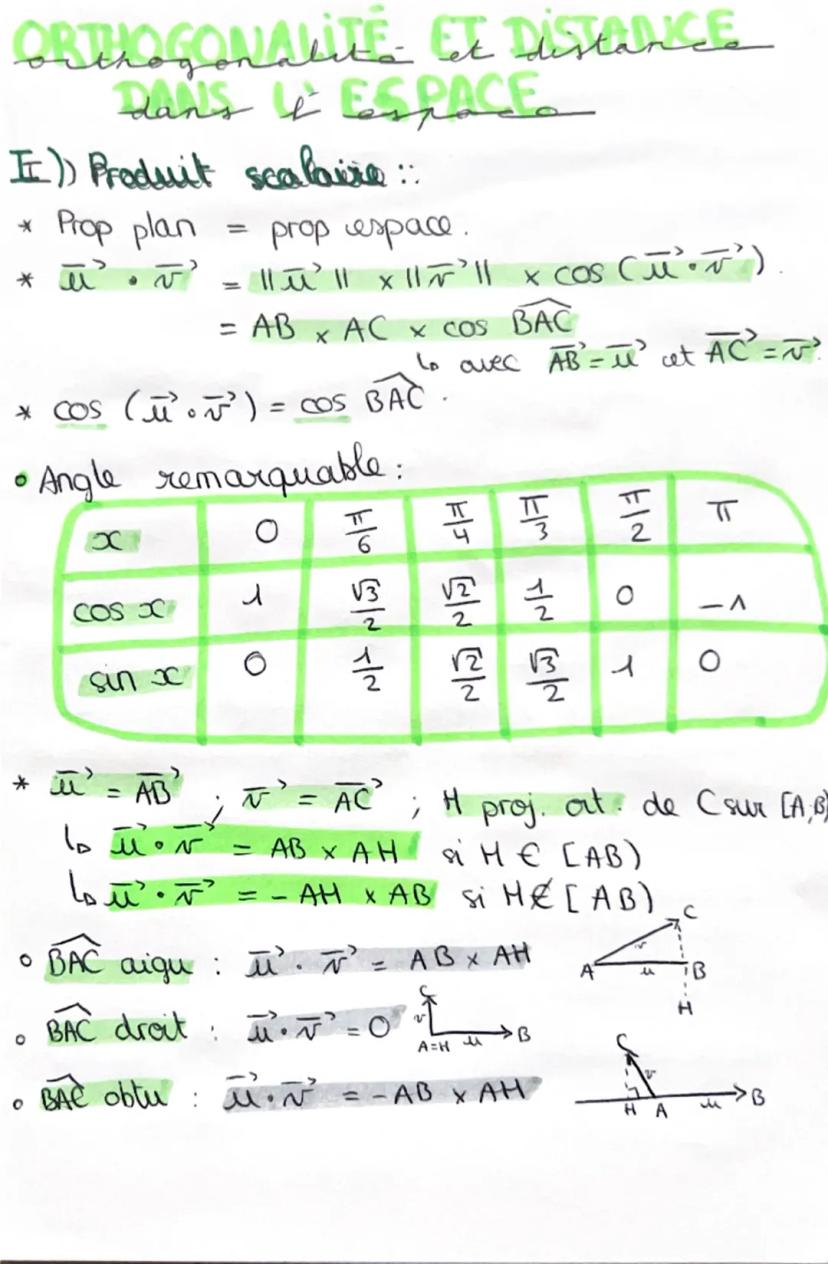 ORTHOGONALITÉ ET DISTANCE
orthogonalité et distance
DANS L'ESPACE
dans l'espace
I)) Produit scalaire ::
* Prop plan = prop espace.
* u⃗ • v⃗ = ||u⃗|| × ||v⃗|| × cos (u⃗ • v⃗).
= AB × AC × cos B̂AC
↳ avec AB⃗ = u⃗ et AC⃗ = v⃗.
* cos (u⃗ • v⃗) = cos B̂AC.
• Angle remarquable :
x 0 π/6 π/4 π/3 π/2 π
cos x 1 √3/2 √2/2 1/2 0 -1
sin x 0 1/2 √2/2 √3/2 1 0
* u⃗ = AB⃗ ; v⃗ = AC⃗ ; H proj. ort. de C sur [A,B)
↳ u⃗ • v⃗ = AB × AH si H ∈ [AB)
↳ u⃗ • v⃗ = - AH × AB si H ∉ [AB)
C
v
A u B
H
○ B̂AC aigu : u⃗ • v⃗ = AB × AH
○ B̂AC droit : u⃗ • v⃗ = 0
C
v
A=H u B
○ B̂AC obtu : u⃗ • v⃗ = - AB × AH
C
v
H A u B